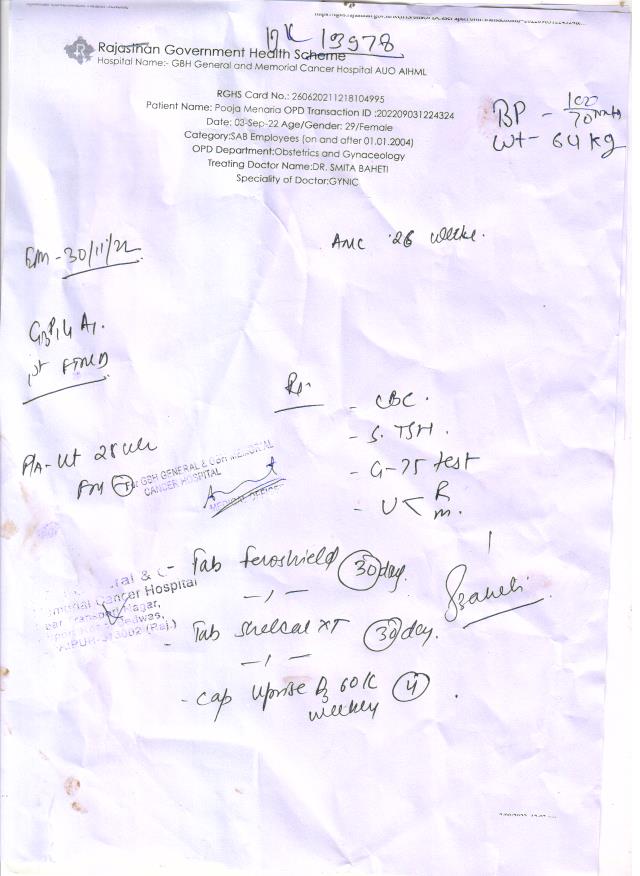 13978
Rajasthan Government Health Scheme
Hospital Name:- GBH General and Memorial Cancer Hospital AUO AIHML
RGHS Card No.: 260620211218104995
Patient Name: Pooja Menaria OPD Transaction ID :202209031224324
Date: 03-Sep-22 Age/Gender: 29/Female
Category:SAB Employees (on and after 01.01.2004)
OPD Department:Obstetrics and Gynaecology
Treating Doctor Name:DR. SMITA BAHETI
Speciality of Doctor:GYNIC
BP - 100/70
wt- 64 kg
ANC 26 weeks.
30/11/22
G3P1L1A1.
1st FTND
- CBC.
- S. TSH.
- G-75 test
- U < R
M.
P/A- Ut
For GBH GENERAL & GBH MEMORIAL
CANCER HOSPITAL
MEDICAL OFFICER
- Tab feroshield 30 day.
Cancer Hospital
Transport Nagar,
Bedwas,
(Raj.)
- Tab Shelcal XT 30 day.
- Cap Uprise D3 60K 4
weekly